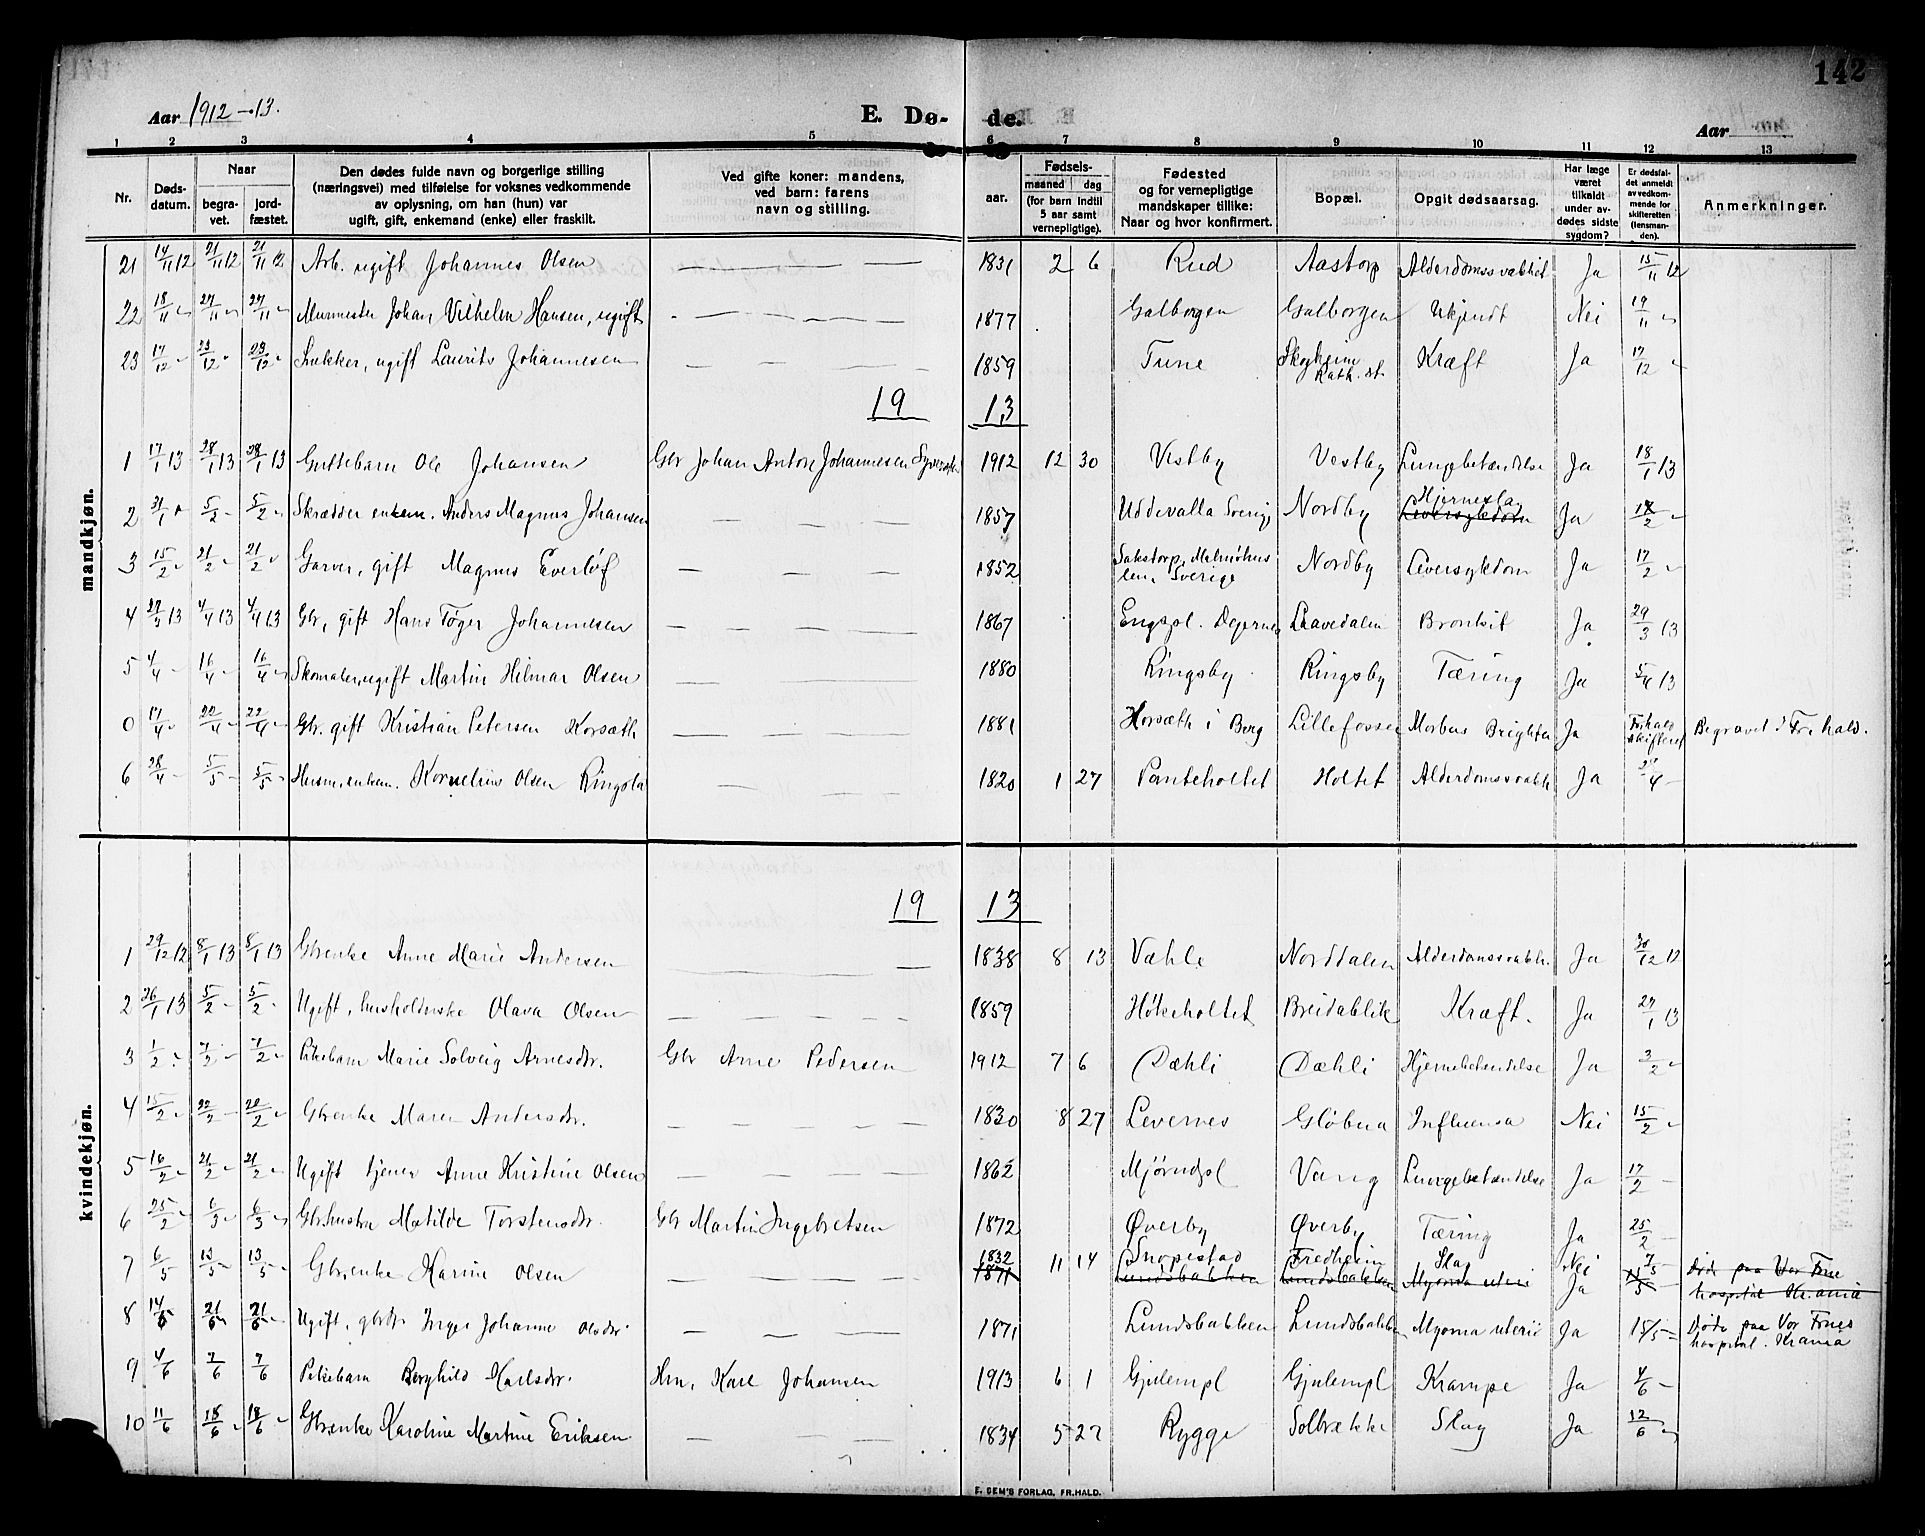 142
Aar 1912-13.
E. Dø- de.
Aar
1 2 3 4 5 6 7 8 9 10 11 12 13
Nr. Døds-datum. Naar begra-vet. jord-fæstet. Den dødes fulde navn og borgerlige stilling (næringsvei) med tilføielse for voksnes vedkommende av oplysning, om han (hun) var ugift, gift, enkemand (enke) eller fraskilt. Ved gifte koner: mandens, ved barn: farens navn og stilling. aar. Fødsels- maaned dag (for barn indtil 5 aar samt vernepligtige). Fødested og for vernepligtige mandskaper tillike: Naar og hvor konfirmert. Bopæl. Opgit dødsaarsag. Har læge været tilkaldt under av-dødes sidste sygdom? Er dødsfal-det anmeldt av vedkom-mende for skifteretten (lensman-den). Anmerkninger.
mandkjøn.
21 14/11 12 21/11 12 21/11 12 Arb. ugift Johannes Olsen — — — 1831 2 6 Rud Aastorp Alderdomssvakhet Ja 15/11 12
22 18/11 " 27/11 " 27/11 " Murmester Johan Vilhelm Hansen, ugift — — — 1877 Galborgen Galborgen Ukjendt Nei 19/11 "
23 17/12 " 23/12 " 23/12 " ugift Laurits Johannesen — — — 1859 Tune Skogheim Kræft Ja 17/12 "
19 13
1 17/1 13 28/1 13 28/1 13 Guttebarn Ole Johansen Gbr Johan Anton Johannesen 1912 12 30 Vestby Vestby Lungebetændelse Ja 18/1 13
2 31/1 " 5/2 " 5/2 " Skrædder enkem. Anders Magnus Johansen — — — 1857 Uddevalla Sverige Nordby Hjerneslag Leversykdom Ja /2 "
3 15/2 " 21/2 " 21/2 " Garver, gift Magnus Everlöf — — — 1852 Malmöhus len, Sverige Nordby Leversykdom Ja 17/2 "
4 27/3 13 4/4 13 4/4 13 Gbr, gift Hans Tøger Johannesen — — — 1867 Bronkit Ja 29/3 13
5 4/4 " 16/4 " 16/4 " Skomaker, ugift Martin Hilmar Olsen — — — 1880 Ringsby Ringsby Tæring Ja 5/4 13
0 17/4 " 22/4 " 22/4 " Gbr. gift Kristian Petersen Korsæth — — — 1881 Korsæth i Berg Lillefosse Morbus Ja Frhald skifteret Begravet i Fr.hald.
6 28/4 " 5/5 " 5/5 " Husm, enkem. Kornelius Olsen — — — 1820 1 27 Panteholtet Holtet Alderdomssvakh. Ja /4 —
kvindekjøn.
19 13
1 29/12 12 8/1 13 8/1 13 Gbrenke Anne Marie Andersen — — — 1838 8 13 Væhle Norddalen Alderdomssvakh. Ja 30/12 12
2 26/1 13 5/2 " 5/2 " Ugift, husholderske Olava Olsen — — — 1859 Høkeholtet Breidablik Kræft. Ja 27/1 13
3 1/2 " 7/2 " 7/2 " Pikebarn Marie Solveig Arnesdtr. Gbr Arne Pedersen 1912 7 6 Dæhli Dæhli Hjernebetændelse Ja 3/2 "
4 15/2 " 22/2 " 22/2 " Gbrenke Maren Andersdtr. — — — 1830 8 27 Levernes Gløbua Influensa Nei 15/2 "
5 16/2 " 21/2 " 21/2 " Ugift tjener Anne Kristine Olsen — — — 1862 Vang Lungebetændelse Ja 17/2 —
6 25/2 " 6/3 " 6/3 " Gbrhustru Matilde Torstensdtr. Gbr Martin Ingebretsen 1872 Øverby Øverby Tæring Ja 25/2 —
7 6/5 13/5 " 13/5 " Gbrenke Karine Olsen — — — 1832 1871 11 14 Snopestad Lundsbakken Fredheim Lundsbakken Slag Myoma uteri Nei Ja 7/5 — Døde paa Vor Frue hospital Kr.ania
8 14/5 21/5 " 21/5 " Ugift, gbrdtr Inger Johanne Olsdtr. — — — 1871 Lundsbakken Lundsbakken Myoma uteri Ja 15/5 — Døde paa Vor Frues hospital. Krania
9 4/6 7/6 7/6 Pikebarn Borghild Karlsdtr. Hm, Karl Johansen 1913 6 1 Gjulempl Gjulempl Krampe Ja 4/6 —
10 11/6 18/6 " 18/6 " Gbrenke Karoline Martine Eriksen — — — 1834 5 27 Rygge Solbrække Slag Ja 12/6 "
E. SEM'S FORLAG, FR.HALD.